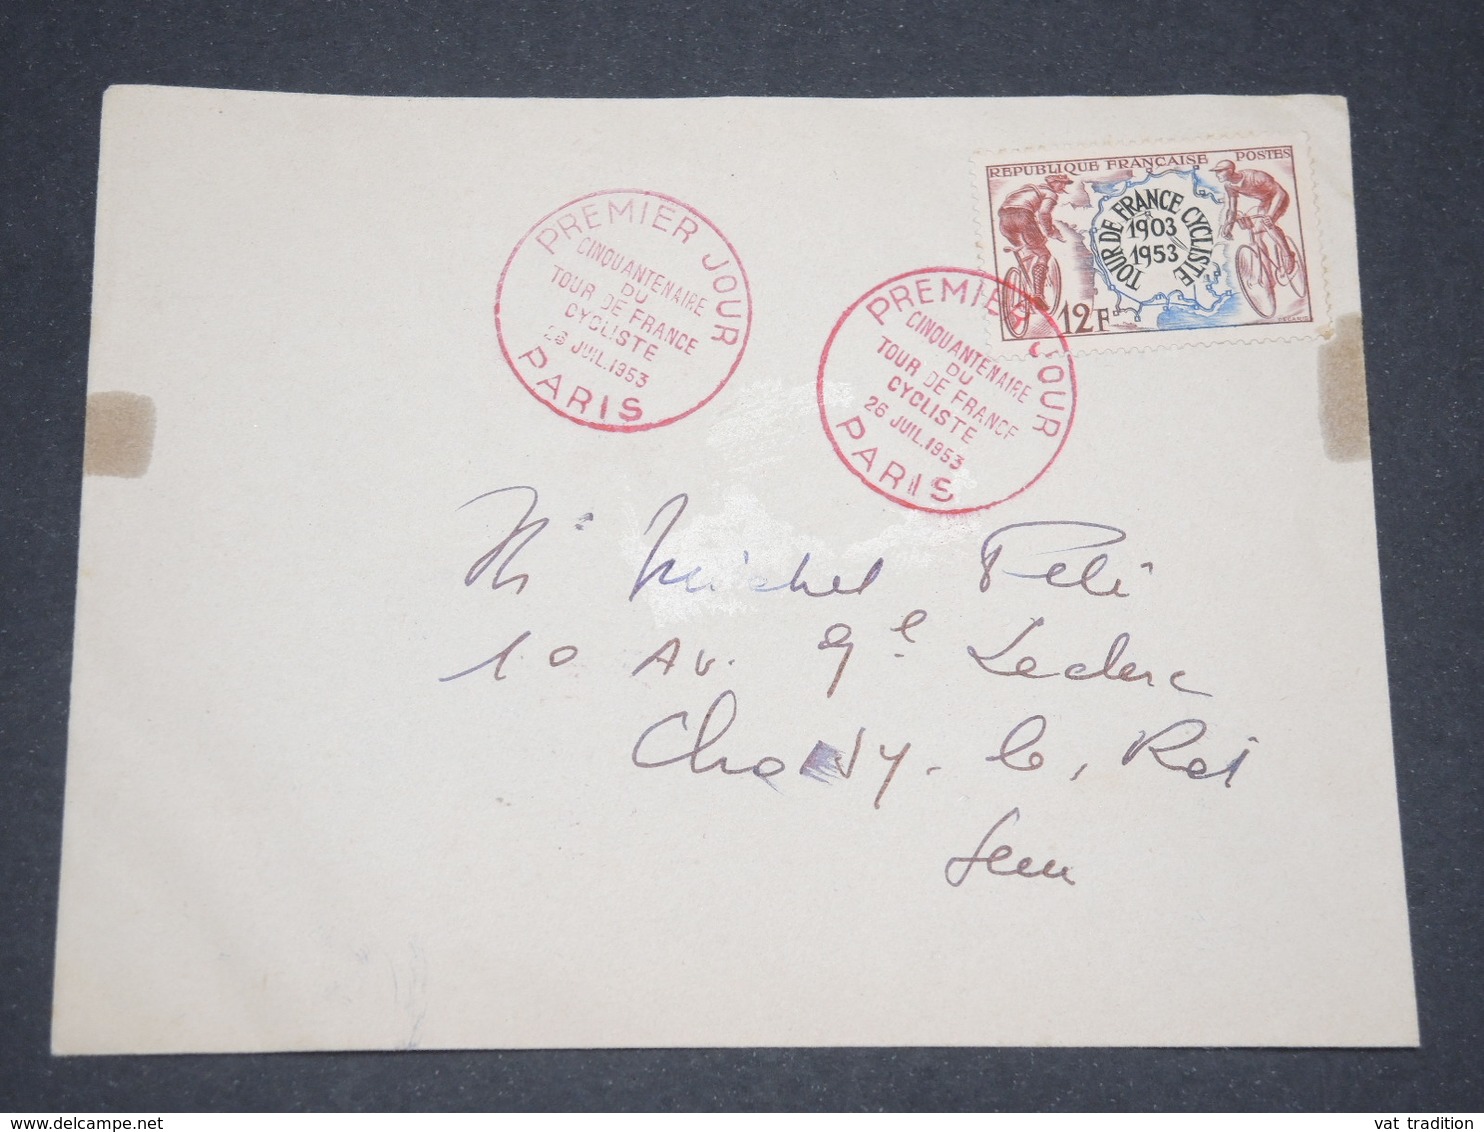 REPUBLIQUE FRANÇAISE POSTES
TOUR DE FRANCE CYCLISTE
1903
1953
12F
PREMIER JOUR
CINQUANTENAIRE
DU
TOUR DE FRANCE
CYCLISTE
26 JUIL.1953
PARIS
PREMIER JOUR
CINQUANTENAIRE
DU
TOUR DE FRANCE
CYCLISTE
26 JUIL.1953
PARIS
Mr Michel Peli
10 Av. Gl Leclerc
Choisy. le. Roi
Seine
vat tradition